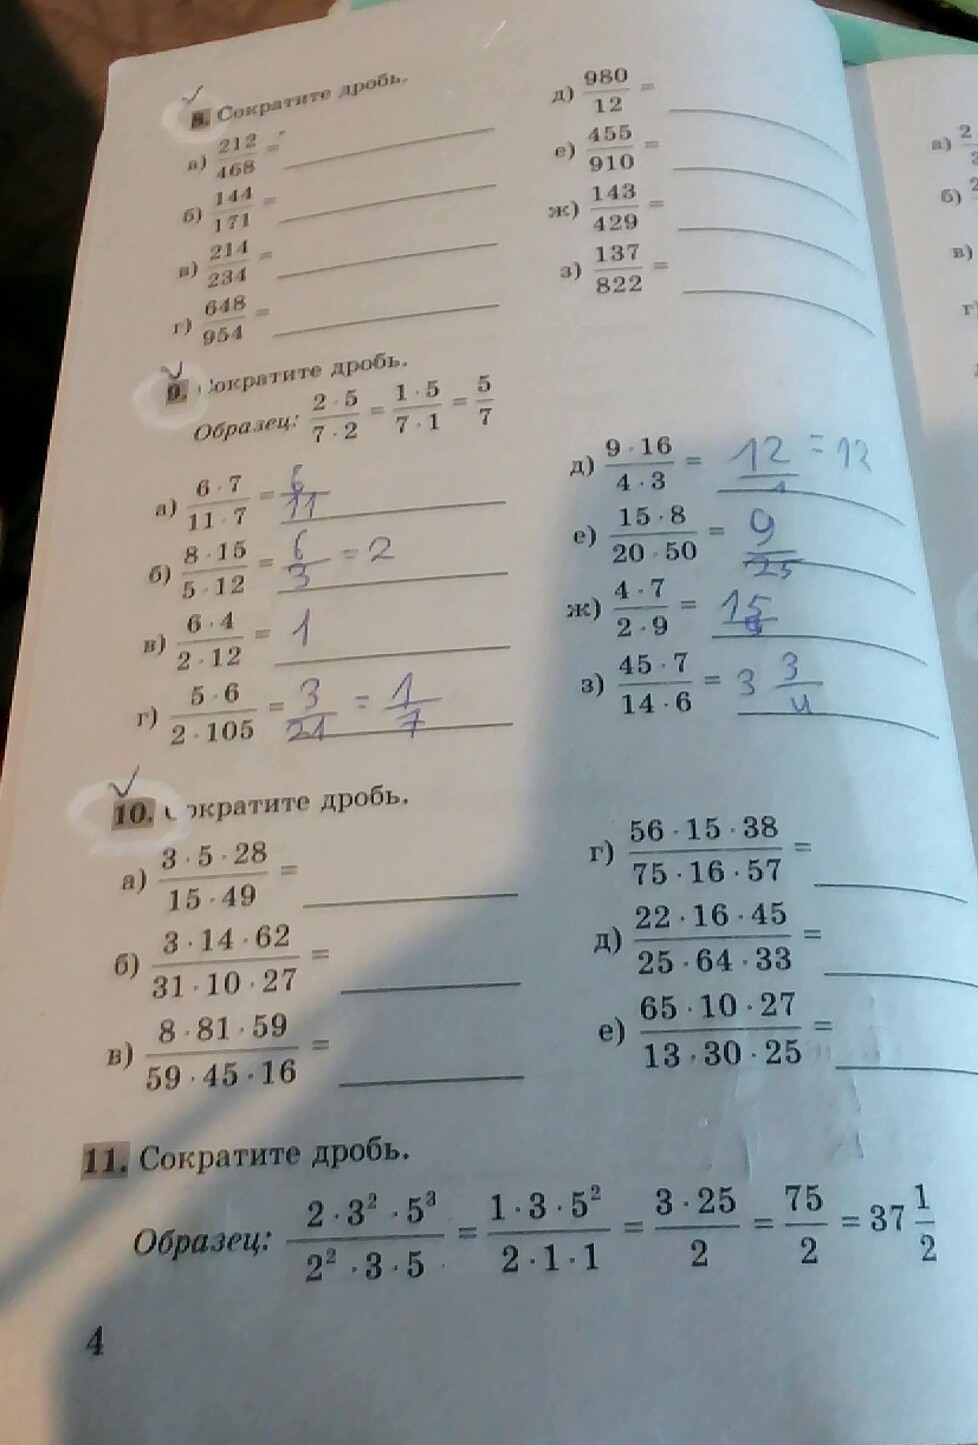 8. Сократите дробь.
а) 212/468 =
б) 144/171 =
в) 214/234 =
г) 648/954 =
д) 980/12 =
е) 455/910 =
ж) 143/429 =
з) 137/822 =
9. Сократите дробь.
Образец: 2 · 5/7 · 2 = 1 · 5/7 · 1 = 5/7
а) 6 · 7/11 · 7 = 6/11
б) 8 · 15/5 · 12 = 6/3 = 2
в) 6 · 4/2 · 12 = 1
г) 5 · 6/2 · 105 = 3/21 = 1/7
д) 9 · 16/4 · 3 = 12/1 = 12
е) 15 · 8/20 · 50 = 9/25
ж) 4 · 7/2 · 9 =
з) 45 · 7/14 · 6 = 3 3/4
10. Сократите дробь.
а) 3 · 5 · 28/15 · 49 =
б) 3 · 14 · 62/31 · 10 · 27 =
в) 8 · 81 · 59/59 · 45 · 16 =
г) 56 · 15 · 38/75 · 16 · 57 =
д) 22 · 16 · 45/25 · 64 · 33 =
е) 65 · 10 · 27/13 · 30 · 25 =
11. Сократите дробь.
Образец: 2 · 3² · 5³/2² · 3 · 5 = 1 · 3 · 5²/2 · 1 · 1 = 3 · 25/2 = 75/2 = 37 1/2
4
а) 2
б) 2
в)